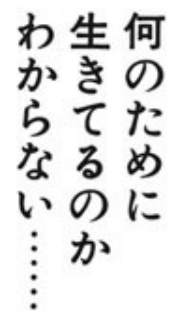 何のために
生きてるのか
わからない……